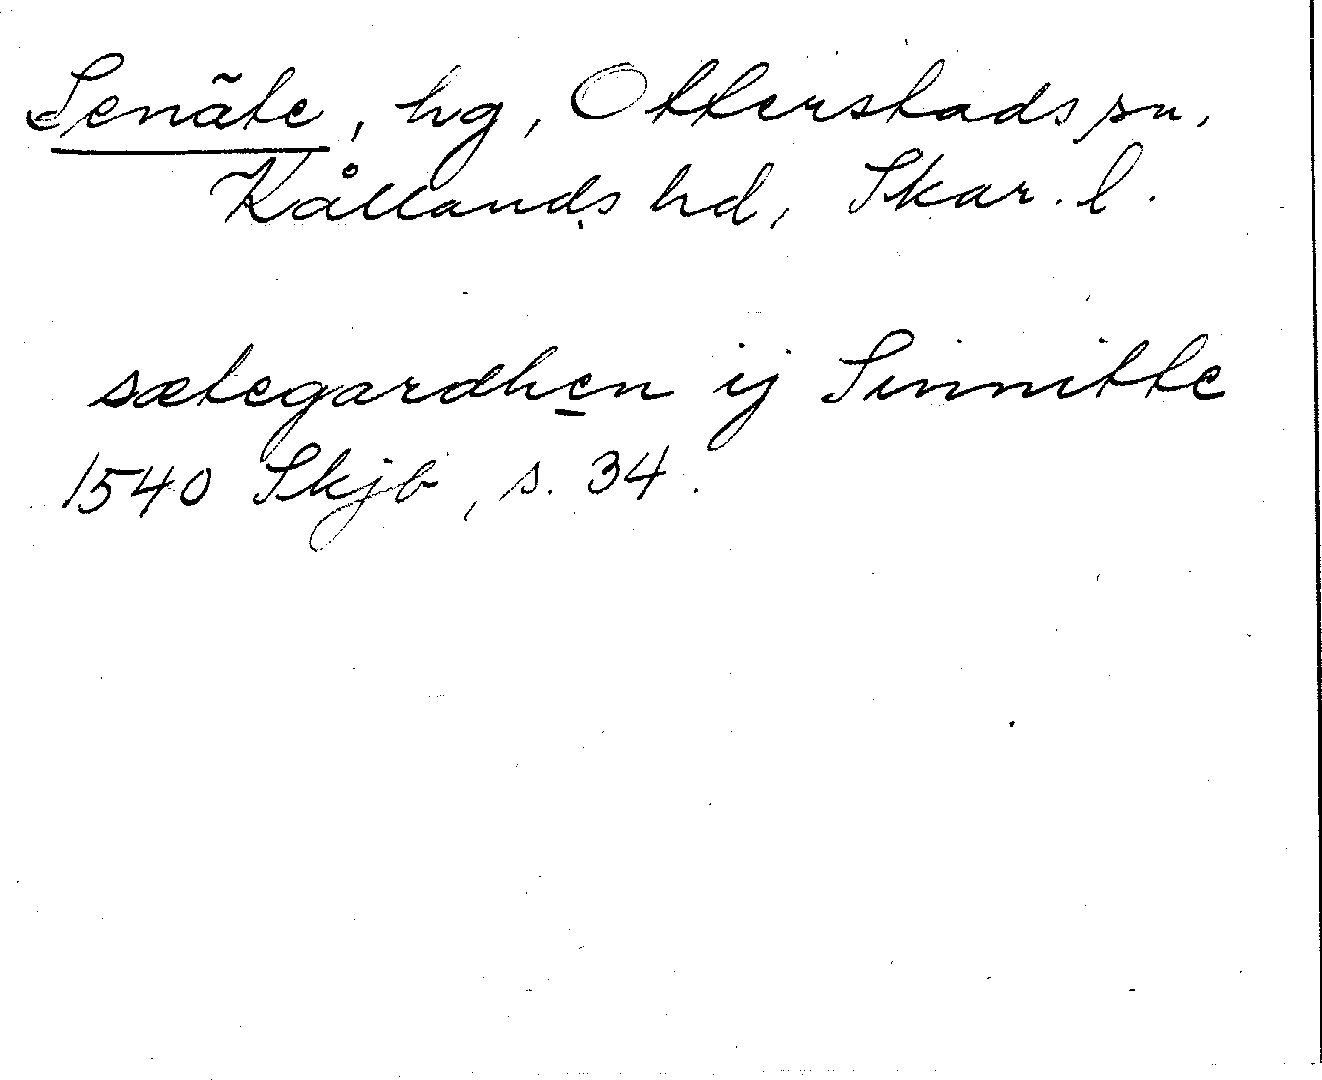 Senäte, hg, Otterstads sn,
Kållands hd, Skar. l.
sætegardhen ij Sinnitte
1540 Skjb, s. 34.